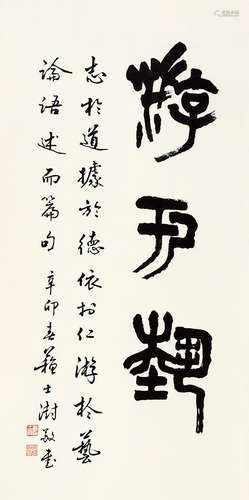 游于艺
志於道據於德依於仁游於藝
論語述而篇句 辛卯春蘇士澍敬書